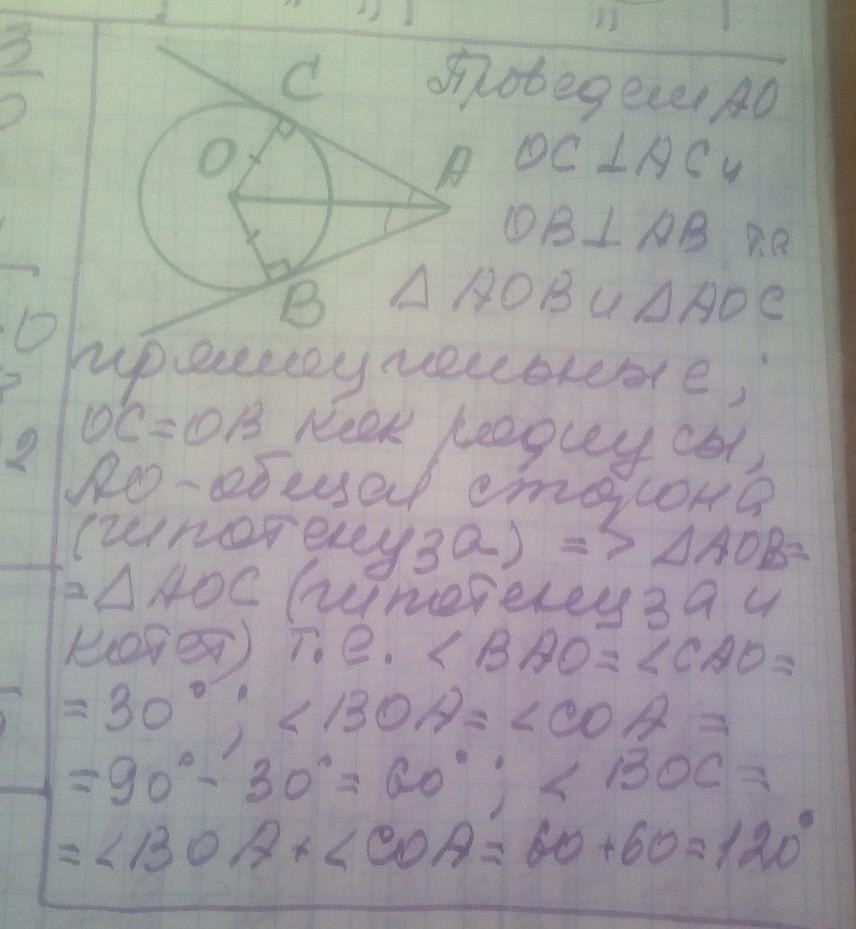 C
O
A
B
Проведем AO
OC⊥AC и
OB⊥AB т.е
△AOB и △AOC
прямоугольные;
OC=OB как радиусы,
AO-общая сторона
(гипотенуза) => △AOB=
=△AOC (гипотенуза и
катет) т.е. <BAO=<CAO=
=30°; <BOA=<COA=
=90°-30°=60°; <BOC=
=<BOA+<COA=60+60=120°